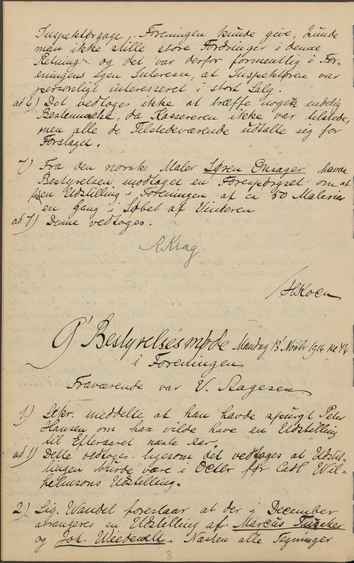 Inspektørgage, Foreningen kunde give, kunde
man ikke stille store Fordringer i denne
Retning og det var derfor formentlig i For-
eningens egen Interesse, at Inspektøren var
personligt interesseret i stort Salg.
ad 6) Det vedtoges ikke at træffe nogen endelig
Bestemmelse, da Kassereren ikke var tilstede,
men alle de Tilstedeværende udtalte sig for
Forslaget.
7) Fra den norske Maler Søren Onsager havde
Bestyrelsen modtaget en Forespørgsel om at
en Udstilling i Foreningen af ca 50 Malerier
en Gang i Løbet af Vinteren
ad 7) Denne vedtoges.
A Krag
H Koen
Bestyrelsesmøde Mandag 13' Novb. 1916
i Foreningen
Fraværende var V.
1) meddelte, at han havde spurgt Peter
Hansen om han vilde have en Udstilling
til Efteraaret næste Aar.
ad 1) Dette vedtoges ligesom det vedtoges at Udstil-
lingen burde være i Oktbr før Carl Wil-
helmsons Udstilling.
2) Sig. Wandel foreslaar at der i December
arrangeres en Udstilling af Marcus
og Joh. Næsten alle Tegninger